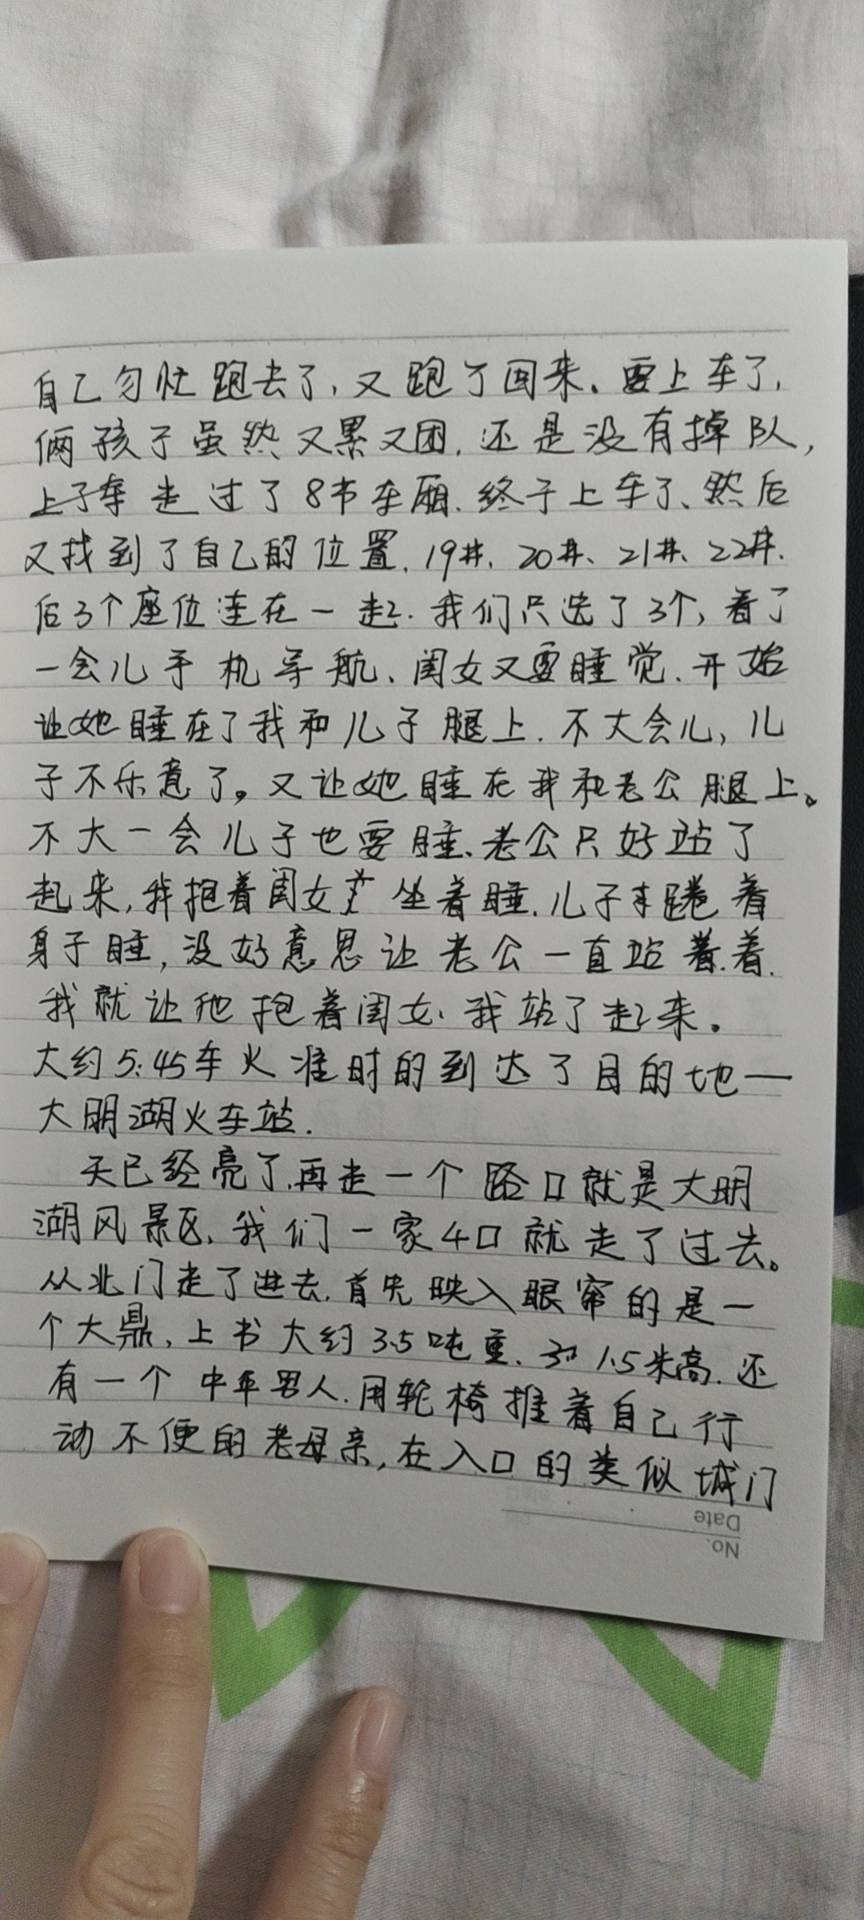 自己匆忙跑去了,又跑了回来。要上车了,
俩孩子虽然又累又困,还是没有掉队,
上了车走过了8节车厢、终于上车了、然后
又找到了自己的位置、19#、20#、21#、22#.
后3个座位连在一起.我们只选了3个,看了
一会儿手机导航、闺女又要睡觉.开始
让她睡在了我和儿子腿上.不大会儿,儿
子不乐意了。又让她睡在我和老公腿上。
不大一会儿子也要睡、老公只好站了
起来,我抱着闺女坐着睡.儿子蜷着
身子睡,没好意思让老公一直站着.
我就让他抱着闺女、我站了起来。
大约5:45车火准时的到达了目的地—
大明湖火车站.
天已经亮了.再走一个路口就是大明
湖风景区,我们一家4口就走了过去。
从北门走了进去.首先映入眼帘的是一
个大鼎、上书大约3.5吨重、1.5米高.还
有一个中年男人.用轮椅推着自己行
动不便的老母亲,在入口的类似城门
Date
No.